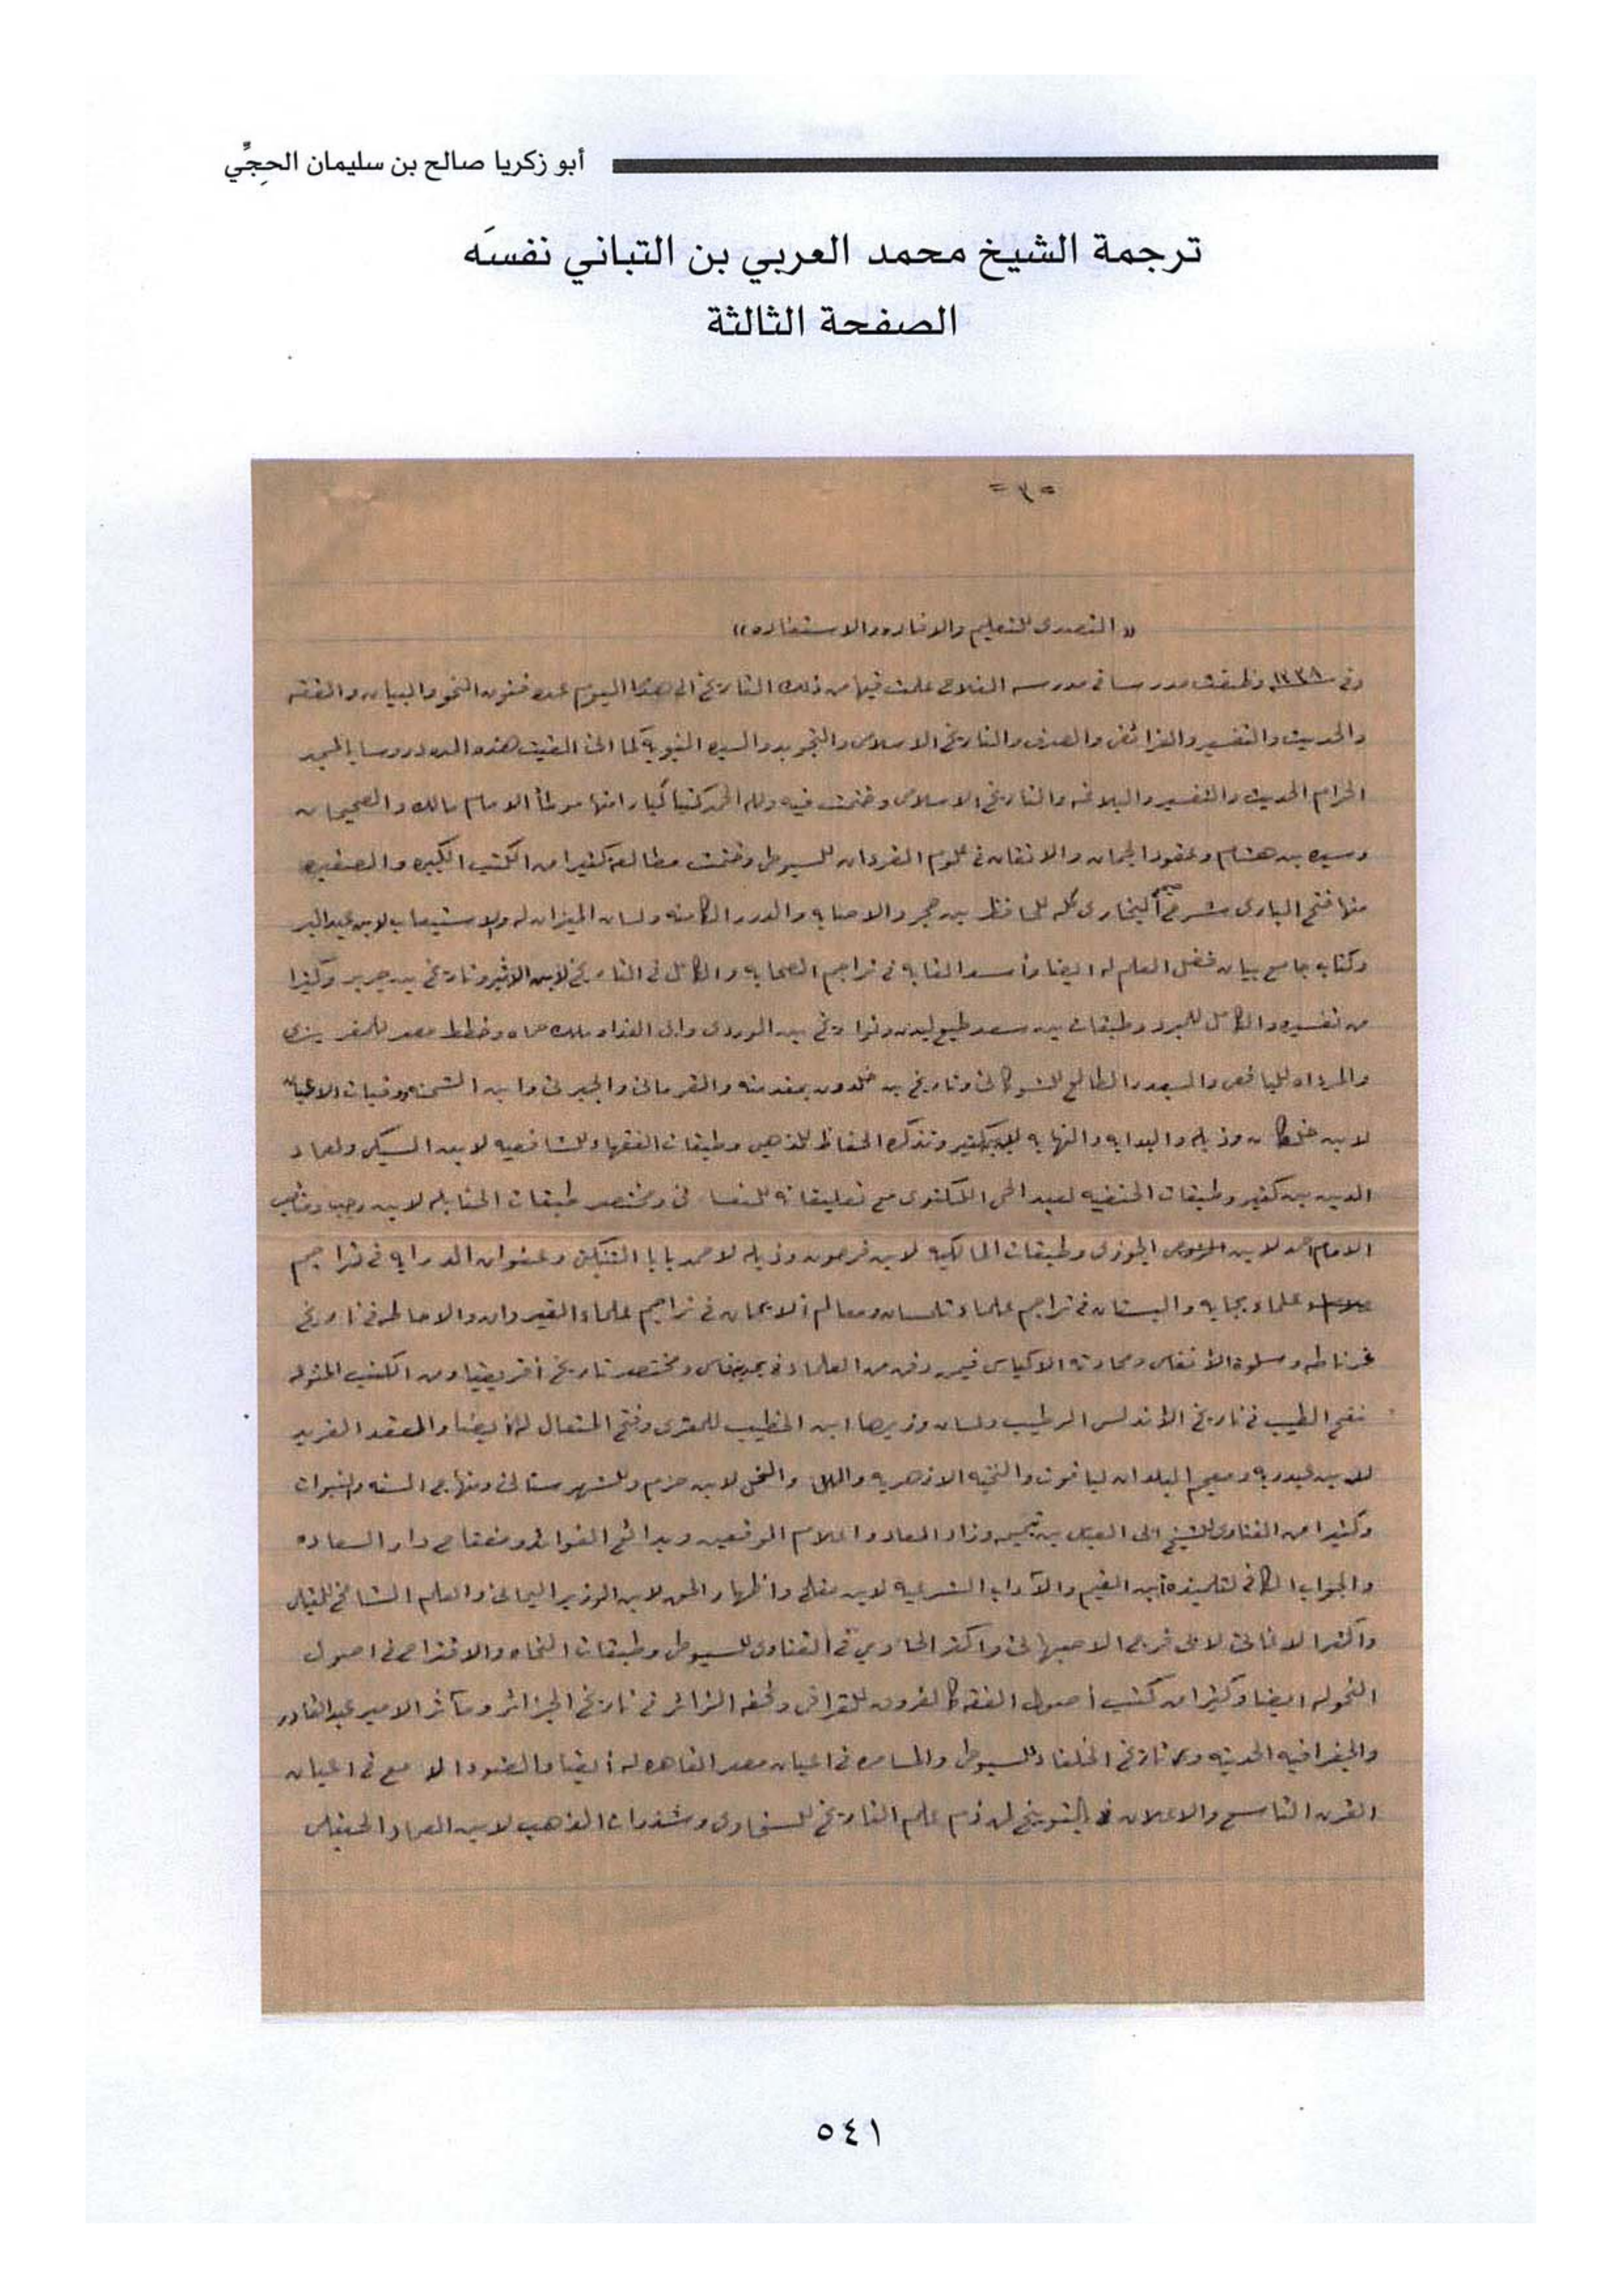 أبو زكريا صالح بن سليمان الحِجِّي
ترجمة الشيخ محمد العربي بن التباني نفسَه
الصفحة الثالثة
= ٣ =
« التصدى للتعليم والافاده والاستفاده »
وفى سنة ١٣٣٨ وظفت مدرسا فى مدرسه الفلاح علمت فيها من ذلك التاريخ الى هذا اليوم عده فنون النحو والبيان والفقه
والحديث والتفسير والفرائض والصرف والتاريخ الاسلامى والتجويد والسيره النبوية كما انى القيت هذه المده دروسا بالمسجد
الحرام الحديث والتفسير والبلاغه والتاريخ الاسلامى وختمت فيه ولله الحمد كتبا كبارا منها موطأ الامام مالك والصحيحان
وسيره بن هشام وعقود الجمان والاتقان فى علوم القرءان للسيوطى وختمت مطالعة كثيرا من الكتب الكبيره والصغيره
منها فتح البارى شرح صحيح البخارى كله للحافظ بن حجر والاصابه والدرر الكامنه ولسان الميزان له والاستيعاب لابن عبدالبر
وكتابه جامع بيان فضل العلم له ايضا وأسد الغابه فى تراجم الصحابه والكامل فى التاريخ لابن الاثير وتاريخ بن جرير وكثيرا
من تفسيره والكامل للمبرد وطبقات بن سعد طبع ليدن وتواريخ بن الوردى وابى الفداء ملك حماه وخطط مصر للمقريزى
والمرءاه لليافعى والبدر الطالع للشوكانى وتاريخ بن خلدون بمقدمته والقرمانى والجبرتى وابن الشحنه ووفيات الاعيان
لابن خلكان وذيله والبدايه والنهايه لابن كثير وتذكره الحفاظ للذهبى وطبقات الفقهاء الشافعيه لابن السبكى ولعماد
الدين بن كثير وطبقات الحنفيه لعبد الحى اللكنوى مع تعليقاته للنعسانى ومختصر طبقات الحنابله لابن رجب ومناقب
الامام احمد لابن الجوزى وطبقات المالكيه لابن فرحون وذيله لاحمد بابا التنبكتى وعنوان الدرايه فى تراجم
علماء بجايه والبستان فى تراجم علماء تلمسان ومعالم الايمان فى تراجم علماء القيروان والاحاطه فى تاريخ
غرناطه وسلوة الأنفاس ومحادثه الاكياس فيمن دفن من العلماء فى فاس ومختصر تاريخ أفريقيا ومن الكتب المنوله
نفح الطيب فى تاريخ الأندلس الرطيب ولسان وزيرها ابن الخطيب للمقرى وفتح المتعال له أيضا والعقد الفريد
لابن عبدربه ومعجم البلدان لياقوت والنخبه الازهريه والملل والنحل لابن حزم وللشهرستانى ومنهاج السنه والنبوات
وكثيرا من الفتاوى للشيخ ابى العباس بن تيميه وزاد المعاد واعلام الموقعين وبدائع الفوائد ومفتاح دار السعاده
والجواب الكافى لتلميذه أبن القيم والآداب الشرعيه لابن مفلح واظهار الحق لابن الوزير اليمانى والعلم الشامخ للمقبلى
واكثر الاغانى لابى فرج الاصبهانى واكثر الحاوي فى الفتاوى للسيوطى وطبقات النحاه والاقتراح فى اصول
النحو له ايضا وكثيرا من كتب أصول الفقه كالفروق للقرافى وتحفه الزائر فى تاريخ الجزائر ومآثر الامير عبد القادر
والجغرافيه الحديثه وتاريخ الخلفاء للسيوطى والمسامره فى اعيان مصر القاهره له أيضا والضوء الامع فى اعيان
القرن التاسع والاعلان بالتوبيخ لمن ذم علم التاريخ للسخاوى وشذرات الذهب لابن العماد الحنبلى
٥٤١